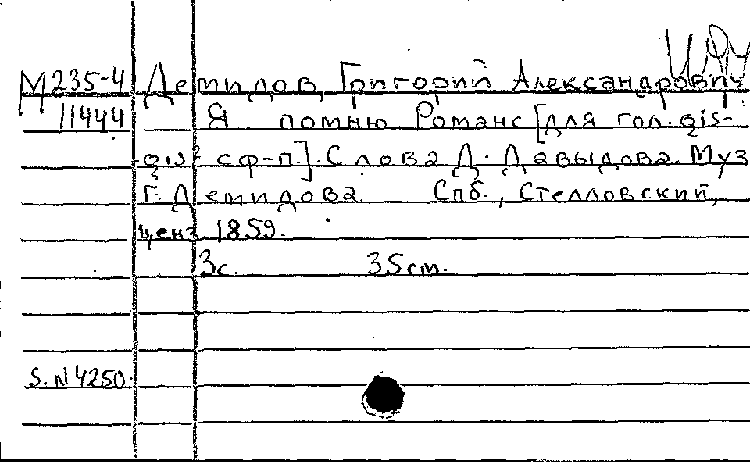 М 235-4 Демидов, Григорий Александрович
11444 Я помню. Романс [для гол. gis-
-gis² с ф-п]. Слова Д. Давыдова. Муз
Г. Демидова. Спб., Стелловский,
ценз. 1859.
3с. 35 cm.
S. N 4250.